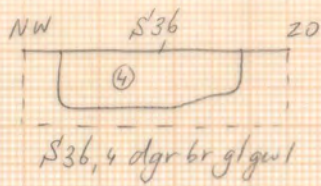 NW S36 ZO
4
S36, 4 dgr br gl gew 1